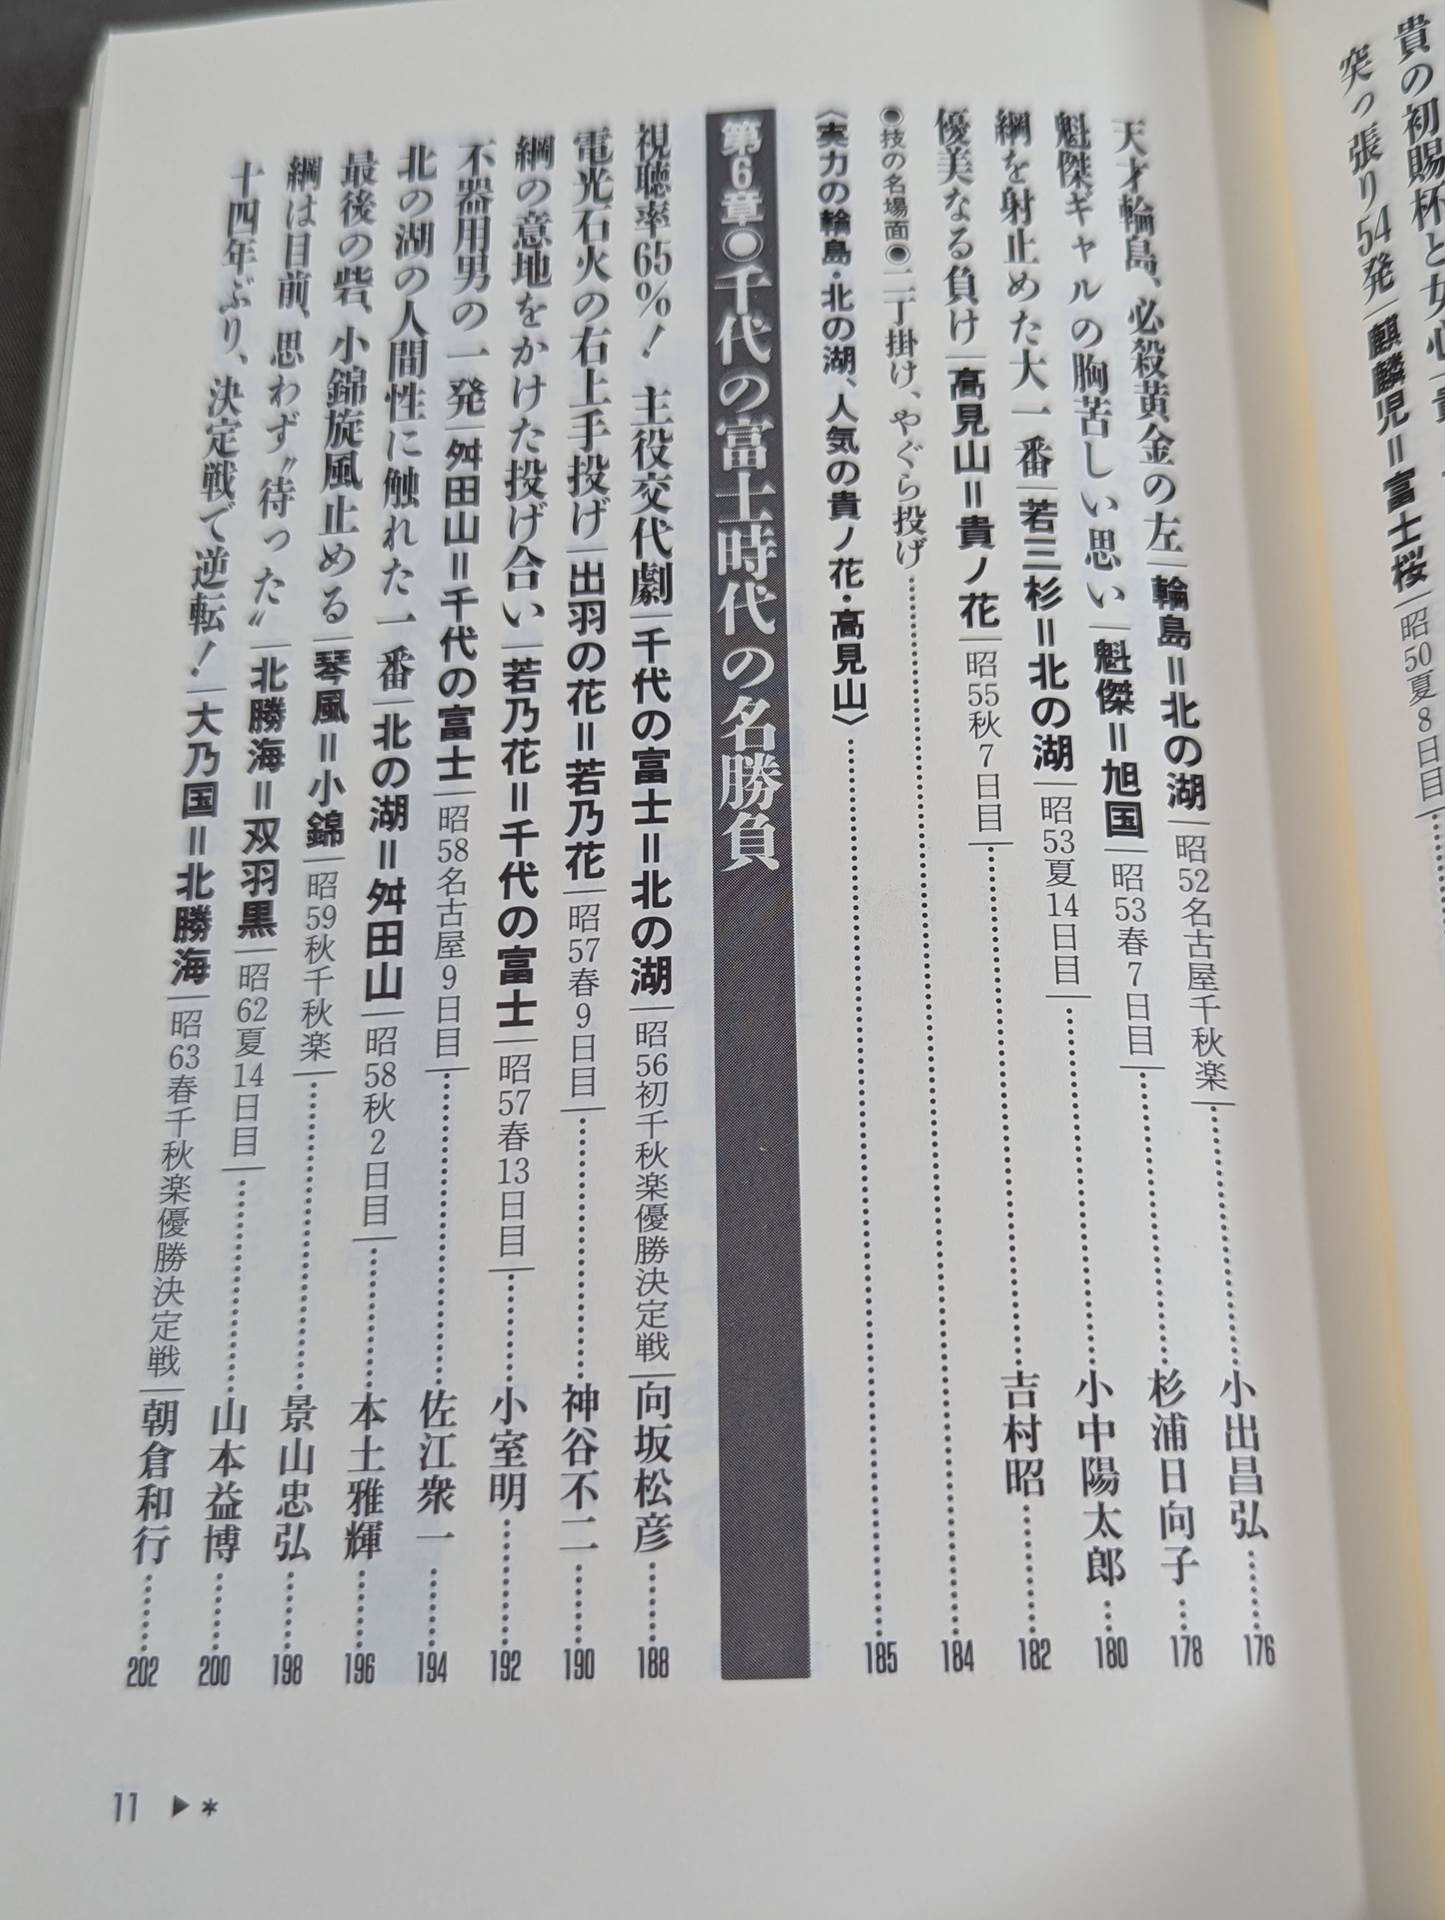 貴の初賜杯と女心
突っ張り54発│麒麟児＝富士桜│昭50夏8日目│
天才輪島、必殺黄金の左│輪島＝北の湖│昭52名古屋千秋楽│……小出昌弘……176
魁傑ギャルの胸苦しい思い│魁傑＝旭国│昭53春7日目│……杉浦日向子……178
綱を射止めた大一番│若三杉＝北の湖│昭53夏14日目│……小中陽太郎……180
優美なる負け│高見山＝貴ノ花│昭55秋7日目│……吉村昭……182
●技の名場面●二丁掛け、やぐら投げ……184
〈実力の輪島・北の湖、人気の貴ノ花・高見山〉……185
第6章●千代の富士時代の名勝負
視聴率65%！ 主役交代劇│千代の富士＝北の湖│昭56初千秋楽優勝決定戦│向坂松彦……188
電光石火の右上手投げ│出羽の花＝若乃花│昭57春9日目│……神谷不二……190
綱の意地をかけた投げ合い│若乃花＝千代の富士│昭57春13日目│……小室明……192
不器用男の一発│舛田山＝千代の富士│昭58名古屋9日目│……佐江衆一……194
北の湖の人間性に触れた一番│北の湖＝舛田山│昭58秋2日目│……本土雅輝……196
最後の砦、小錦旋風止める│琴風＝小錦│昭59秋千秋楽│……景山忠弘……198
綱は目前、思わず〝待った〟│北勝海＝双羽黒│昭62夏14日目│……山本益博……200
十四年ぶり、決定戦で逆転！│大乃国＝北勝海│昭63春千秋楽優勝決定戦│朝倉和行……202
11 ▶ *